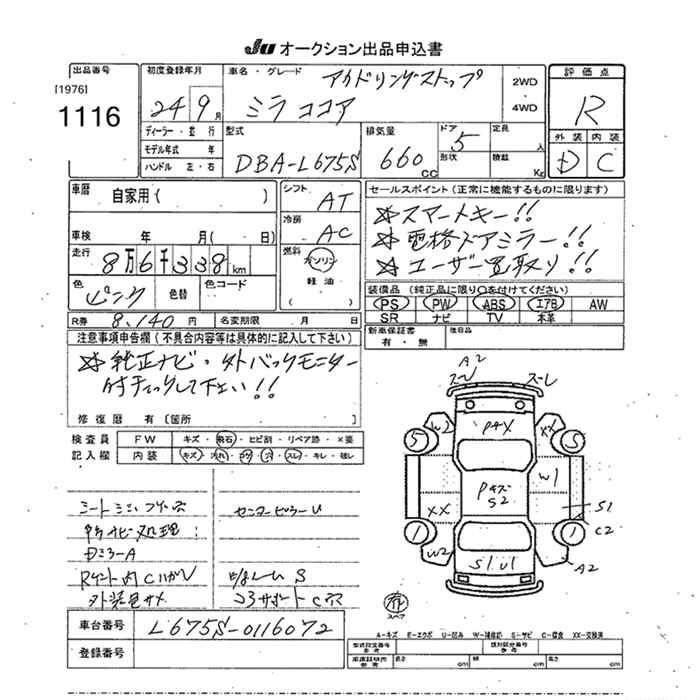 JU オークション出品申込書
出品番号
[1976]
1116
初度登録年月
24年9月
車名・グレード
アイドリングストップ
ミラココア
2WD
4WD
評価点
R
外装 内装
D C
ディーラー・並行
モデル年式 年
ハンドル 左・右
型式
DBA-L675S
排気量
660 cc
ドア
5
形状
定員
人
積載
Kg
車歴
自家用( )
シフト
AT
冷房
AC
車検 年 月( 日)
走行
8万6千338km
燃料
ガソリン
軽油
色
ピンク
色替
色コード
R券 8,140円
名変期限 月 日
セールスポイント(正常に機能するものに限ります)
☆スマートキー!!
☆電格ドアミラー!!
☆ユーザー買取り!!
装備品(純正品に限り○を付けてください)
PS PW ABS エアB AW
SR ナビ TV 本革
新車保証書
有・無
後日品
注意事項申告欄(不具合内容等は具体的に記入して下さい)
☆純正ナビ・
モニター
して下さい!!
修復歴 有〔箇所 〕
検査員
記入欄
FW キズ・飛石・ヒビ割・リペア跡・×要
内装 キズ・汚れ・コゲ・穴・スレ・キレ・破レ
シート
ナビ処理
DミラーA
センターピラーU
Rゲート内C
S
コアサポートC穴
外装色サメ
A2
W2
XX
S
PキズX
W1
Pキズ
S2
S1
C2
A2
XX
W2
S1 U1
スペア
A-キズ E-エクボ U-凹み W-補修跡 S-サビ C-腐食 XX-交換済
車台番号
L675S-0116072
登録番号
型式指定番号
類別区分番号
長さ cm 幅 cm 高さ cm